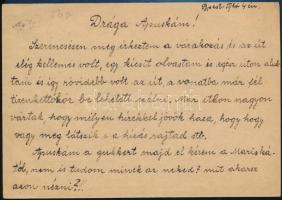 Drága Apuskám!
Szerencsésen meg érkeztem a várakozás és az út
elég kellemes volt, egy kicsit olvastam és egész úton alud
tam és így rövidebb volt az út, a vonatba már fél
tizenkettőkor be lehetett szállni. Már itthon nagyon
vártak, hogy milyen hírekkel jövök haza, hogy hogy
vagy meg látszik e a hízás rajtad stb.
Apuskám a gukkert majd el kérem a Mariská-
tól, nem is tudom minek az neked? mit akarsz
azon nézni?!